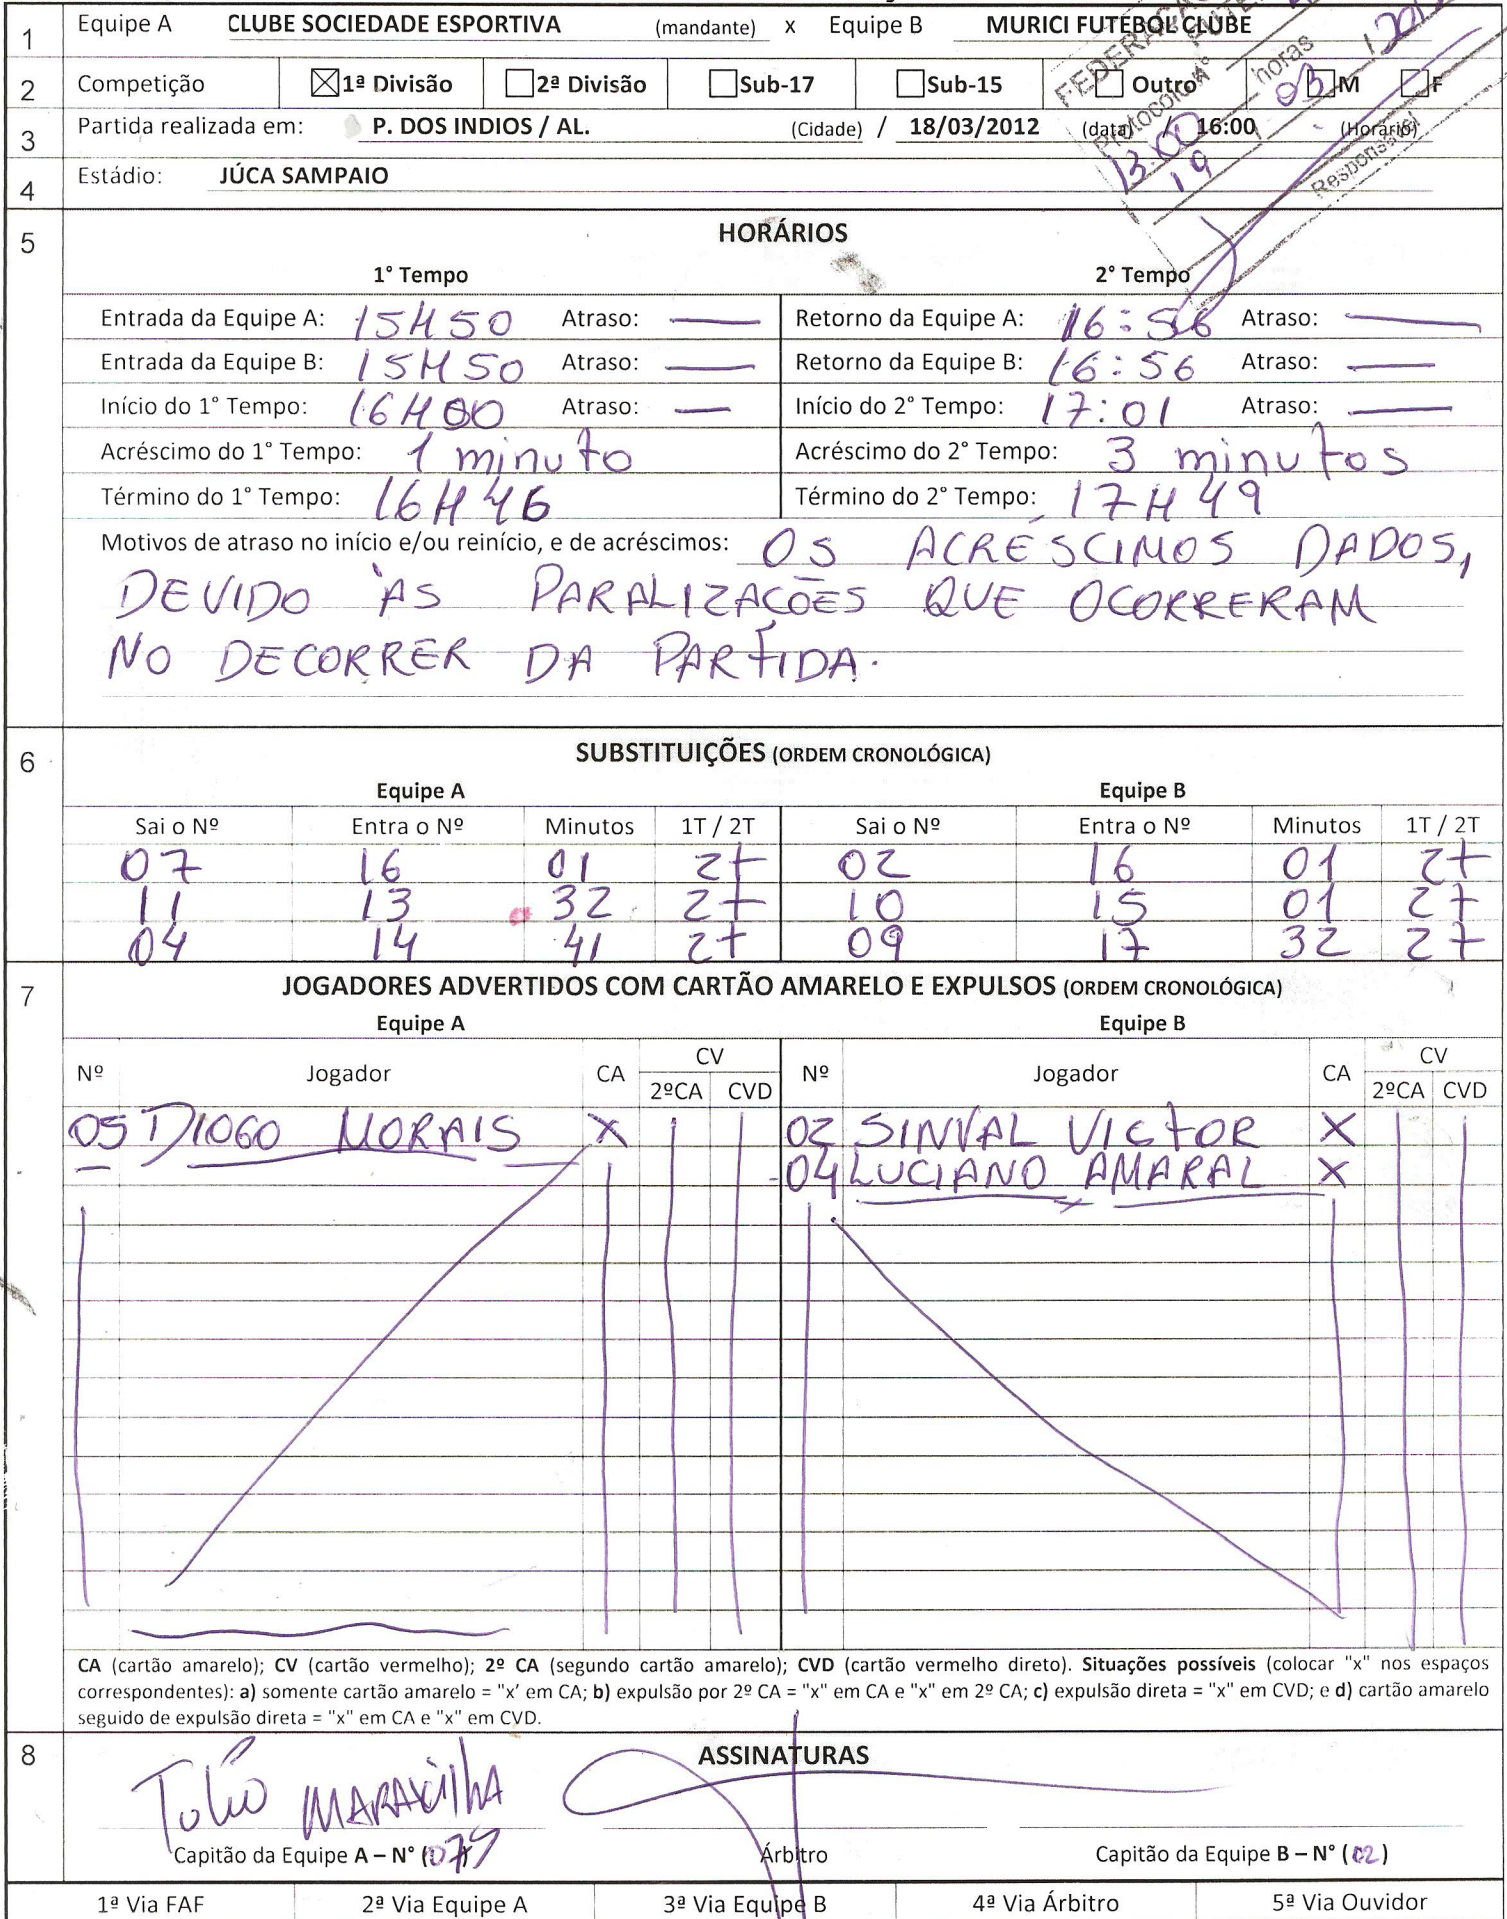 1 Equipe A CLUBE SOCIEDADE ESPORTIVA (mandante) x Equipe B MURICI FUTEBOL CLUBE
2 Competição ☒ 1ª Divisão ☐ 2ª Divisão ☐ Sub-17 ☐ Sub-15 ☐ Outro ☐ M ☐ F
3 Partida realizada em: P. DOS INDIOS / AL. (Cidade) / 18/03/2012 (data) / 16:00 (Horário)
4 Estádio: JÚCA SAMPAIO
Protocolo Nº
13:00 horas
19 03
Responsável
5 HORÁRIOS
1° Tempo 2° Tempo
Entrada da Equipe A: 15H50 Atraso: — Retorno da Equipe A: 16:56 Atraso: —
Entrada da Equipe B: 15H50 Atraso: — Retorno da Equipe B: 16:56 Atraso: —
Início do 1° Tempo: 16H00 Atraso: — Início do 2° Tempo: 17:01 Atraso: —
Acréscimo do 1° Tempo: 1 minuto Acréscimo do 2° Tempo: 3 minutos
Término do 1° Tempo: 16H46 Término do 2° Tempo: 17H49
Motivos de atraso no início e/ou reinício, e de acréscimos: OS ACRÉSCIMOS DADOS,
DEVIDO ÀS PARALIZAÇÕES QUE OCORRERAM
NO DECORRER DA PARTIDA.
6 SUBSTITUIÇÕES (ORDEM CRONOLÓGICA)
Equipe A Equipe B
Sai o Nº Entra o Nº Minutos 1T / 2T Sai o Nº Entra o Nº Minutos 1T / 2T
07 16 01 2T 02 16 01 2T
11 13 32 2T 10 15 01 2T
04 14 41 2T 09 17 32 2T
7 JOGADORES ADVERTIDOS COM CARTÃO AMARELO E EXPULSOS (ORDEM CRONOLÓGICA)
Equipe A Equipe B
Nº Jogador CA CV Nº Jogador CA CV
2ºCA CVD 2ºCA CVD
05 DIOGO MORAIS X 02 SINVAL VICTOR X
04 LUCIANO AMARAL X
CA (cartão amarelo); CV (cartão vermelho); 2º CA (segundo cartão amarelo); CVD (cartão vermelho direto). Situações possíveis (colocar "x" nos espaços
correspondentes): a) somente cartão amarelo = "x' em CA; b) expulsão por 2º CA = "x" em CA e "x" em 2º CA; c) expulsão direta = "x" em CVD; e d) cartão amarelo
seguido de expulsão direta = "x" em CA e "x" em CVD.
8 ASSINATURAS
Tulio MARAVILHA
Capitão da Equipe A – N° ( ) Árbitro Capitão da Equipe B – N° (02)
1ª Via FAF 2ª Via Equipe A 3ª Via Equipe B 4ª Via Árbitro 5ª Via Ouvidor